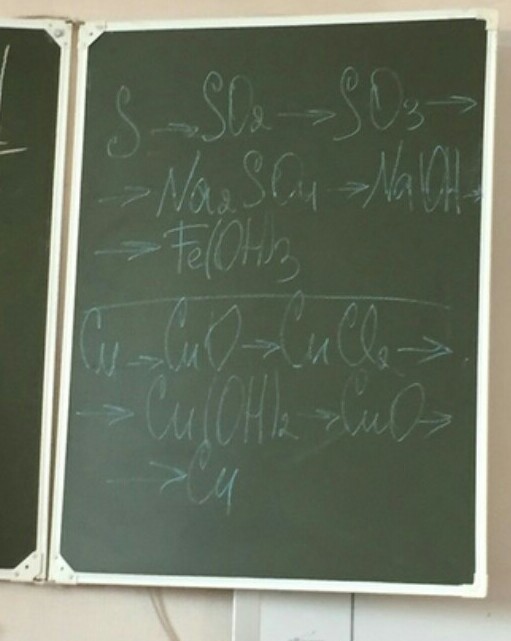 S → SO₂ → SO₃ →
→ Na₂SO₄ → NaOH →
→ Fe(OH)₃
Cu → CuO → CuCl₂ →
→ Cu(OH)₂ → CuO →
→ Cu